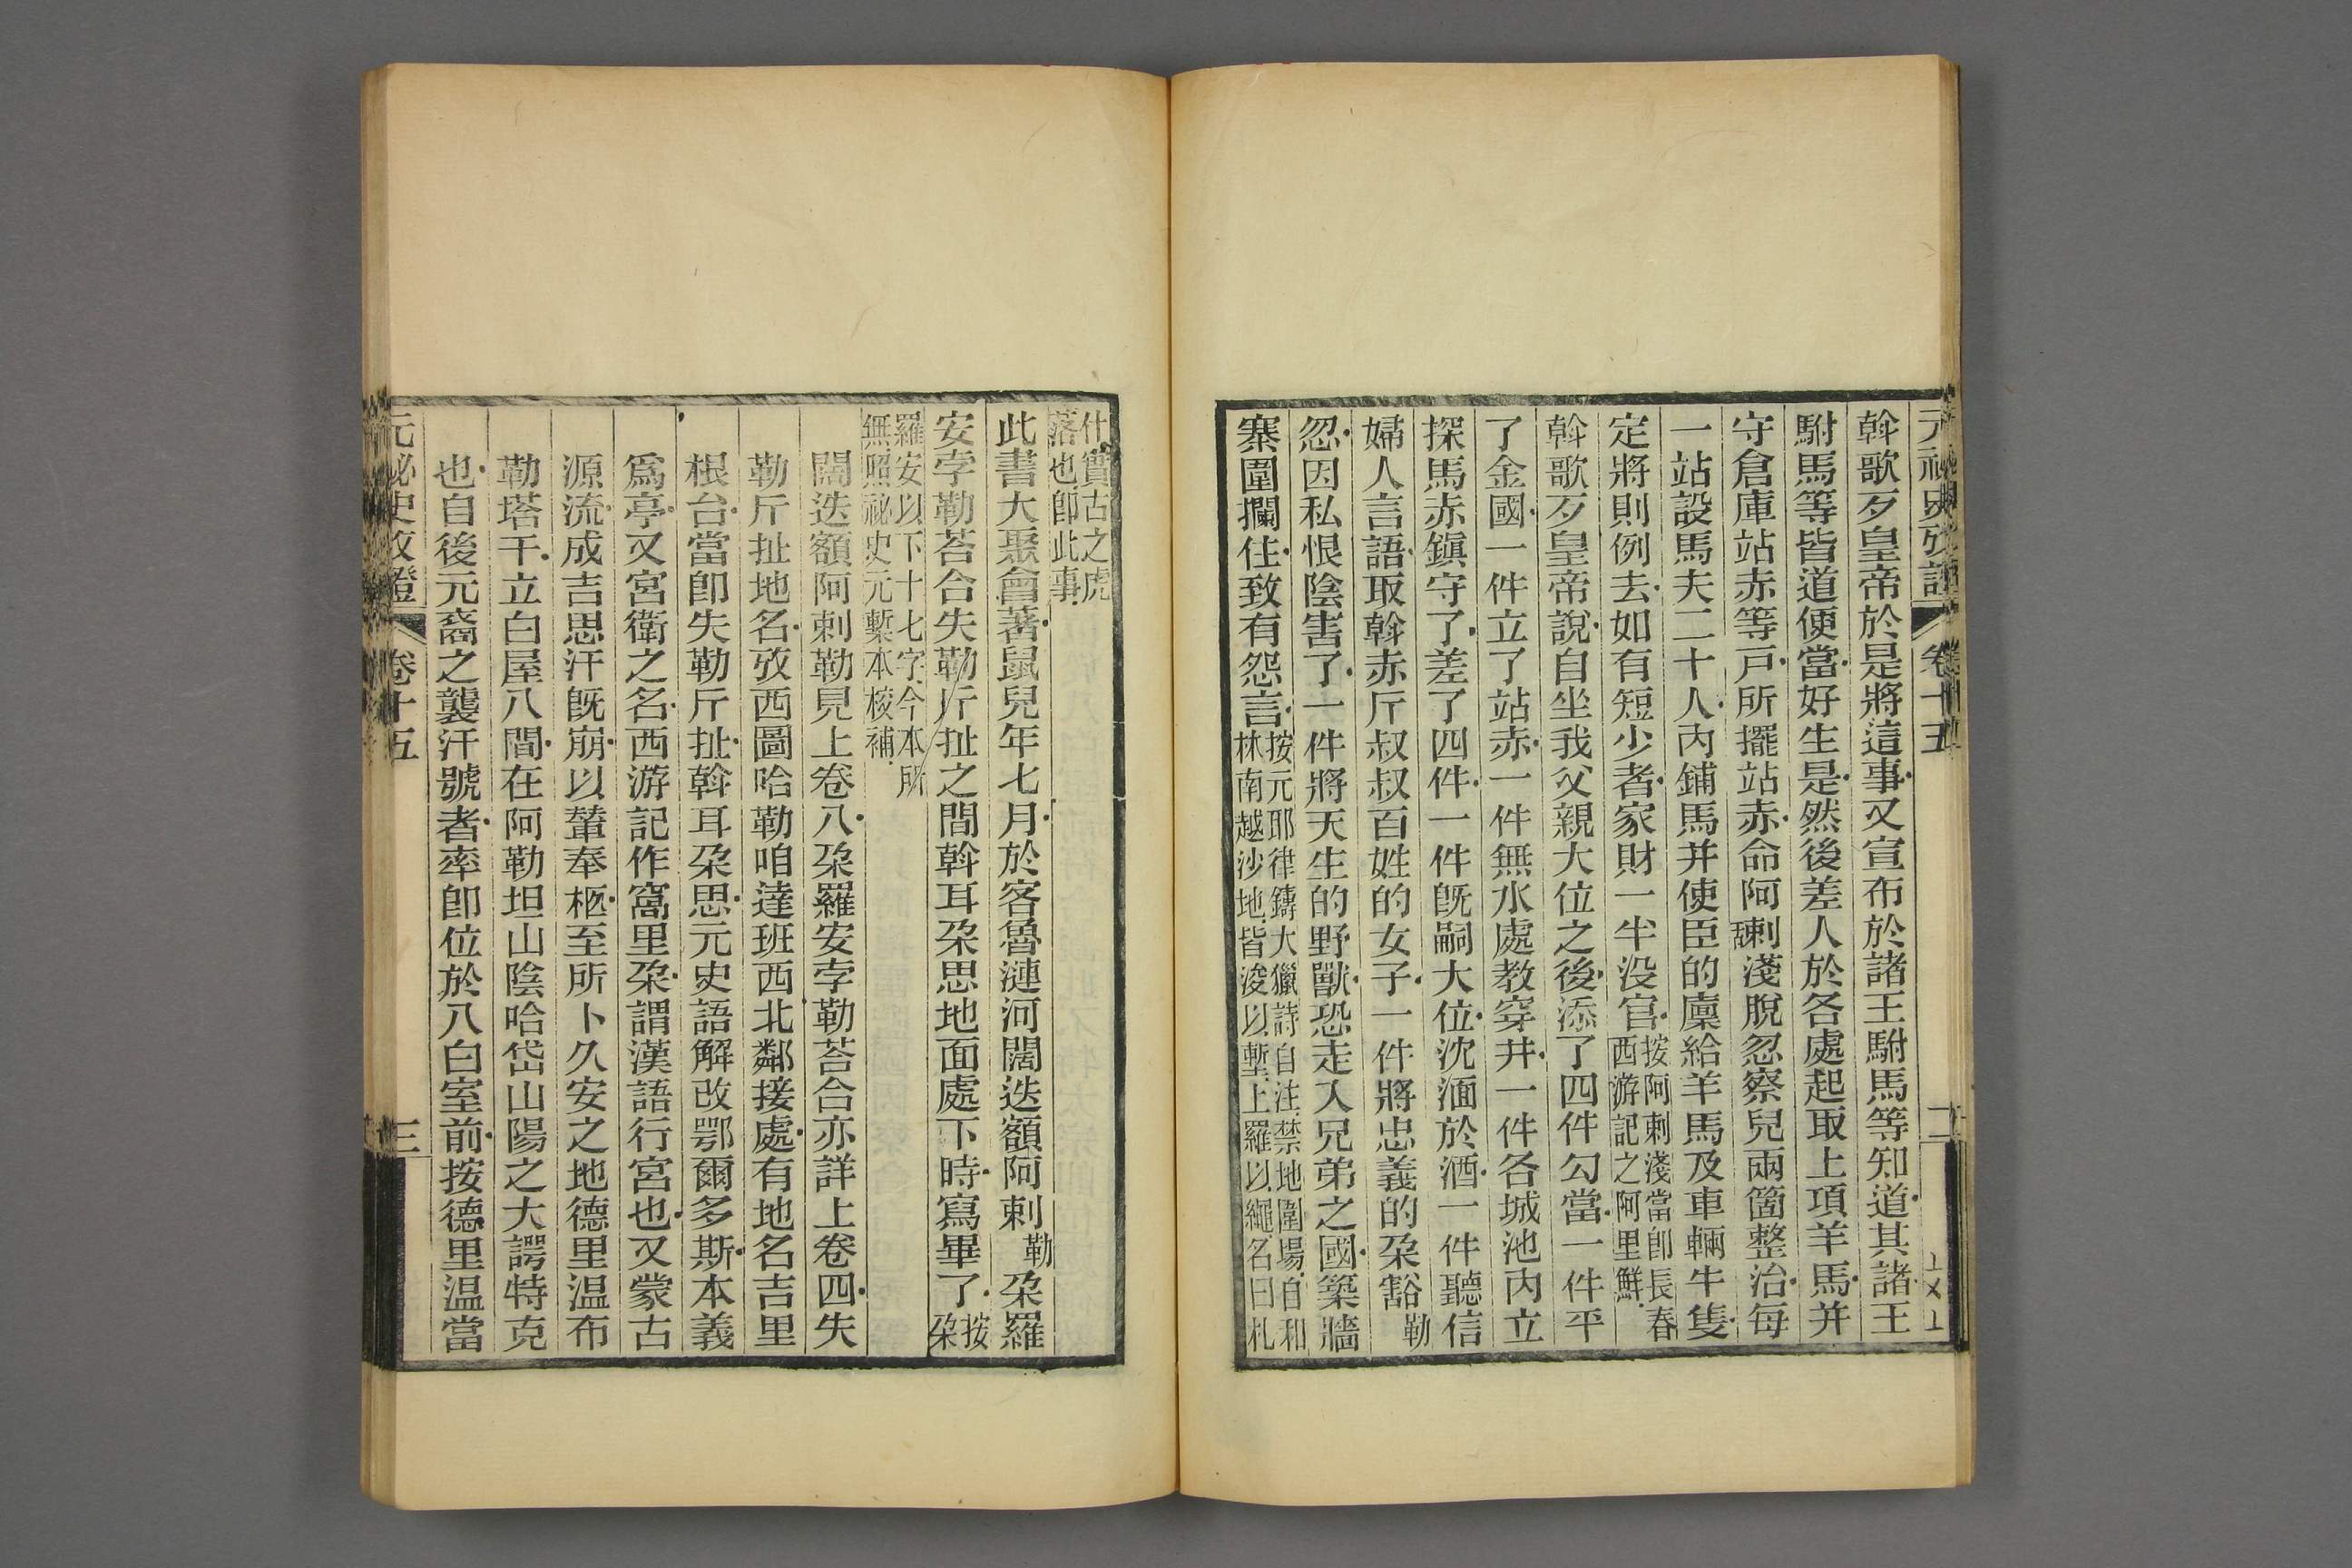 元祕史攷證 卷十五
斡歌歹皇帝於是將這事又宣布於諸王駙馬等知道其諸王
駙馬等皆道便當好生是然後差人於各處起取上項羊馬并
守倉庫站赤等戶所擺站赤命阿舌剌淺脫忽察兒兩箇整治每
一站設馬夫二十人內鋪馬并使臣的廩給羊馬及車輛牛隻
定將則例去如有短少者家財一半没官按阿剌淺當卽長春西游記之阿里鮮
斡歌歹皇帝說自坐我父親大位之後添了四件勾當一件平
了金國一件立了站赤一件無水處教穿井一件各城池內立
探馬赤鎮守了差了四件一件旣嗣大位沈湎於酒一件聽信
婦人言語取斡赤斤叔叔百姓的女子一件將忠義的朶豁勒
忽因私恨陰害了一件將天生的野獸恐走入兄弟之國築牆
寨圍攔住致有怨言按元耶律鑄大獵詩自注禁地圍場自和林南越沙地皆浚以塹上羅以繩名曰札
什實古之虎落也卽此事
此書大聚會著鼠兒年七月於客魯漣河闊迭額阿剌勒朶羅
安孛勒荅合失勒斤扯之間斡耳朶思地面處下時寫畢了按朶
羅安以下十七字今本所無照祕史元槧本核補
闊迭額阿剌勒見上卷八朶羅安孛勒荅合亦詳上卷四失
勒斤扯地名攷西圖哈勒咱達班西北鄰接處有地名吉里
根台當卽失勒斤扯斡耳朶思元史語解改鄂爾多斯本義
爲亭又宮衛之名西游記作窩里朶謂漢語行宮也又蒙古
源流成吉思汗旣崩以輦奉柩至所卜久安之地德里温布
勒塔干立白屋八間在阿勒坦山陰哈岱山陽之大諤特克
也自後元裔之襲汗號者率卽位於八白室前按德里温當
元祕史攷證 卷十五 三